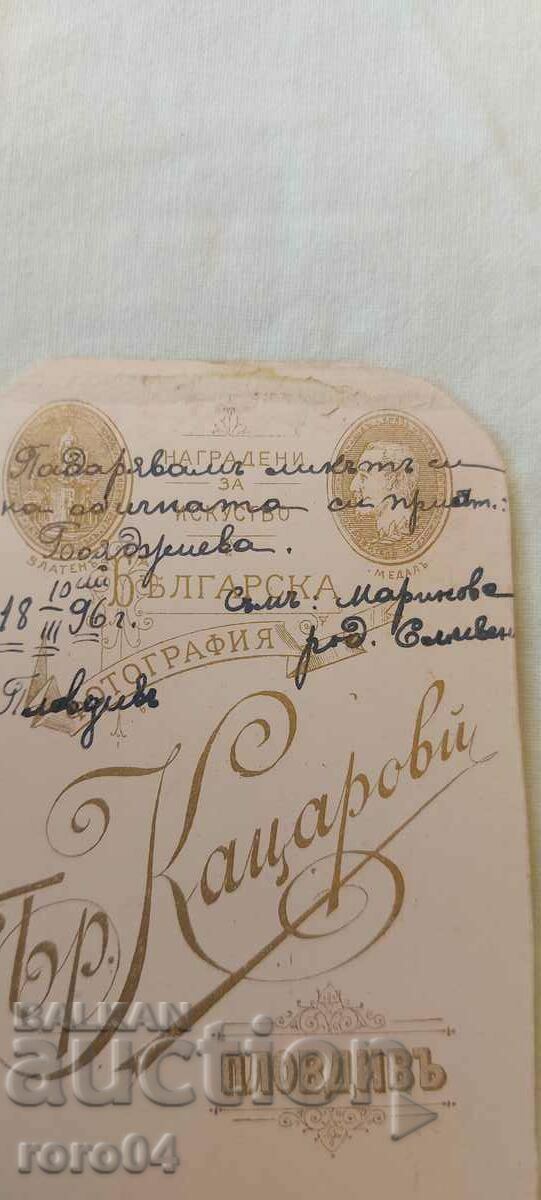 НАГРАДЕНИ
ЗА
ИСКУСТВО
Подарявамъ ликътъ си
на обичната си прият.:
Бояджиева.
ЗЛАТЕНЪ
МЕДАЛЪ
БЪЛГАРСКА
18 10/III 96 г.
Съмъ: Маринова
ФОТОГРАФИЯ
род. Сливен
Пловдивъ
Бр. Кацарови
ПЛОВДИВЪ
BALKAN
auction
roro04